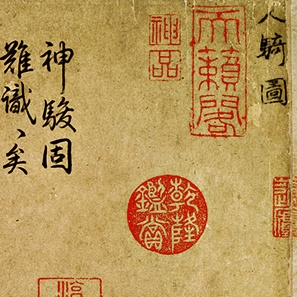 人騎圖
天籟閣
神品
神駿固
難識、矣
乾隆
鑑賞